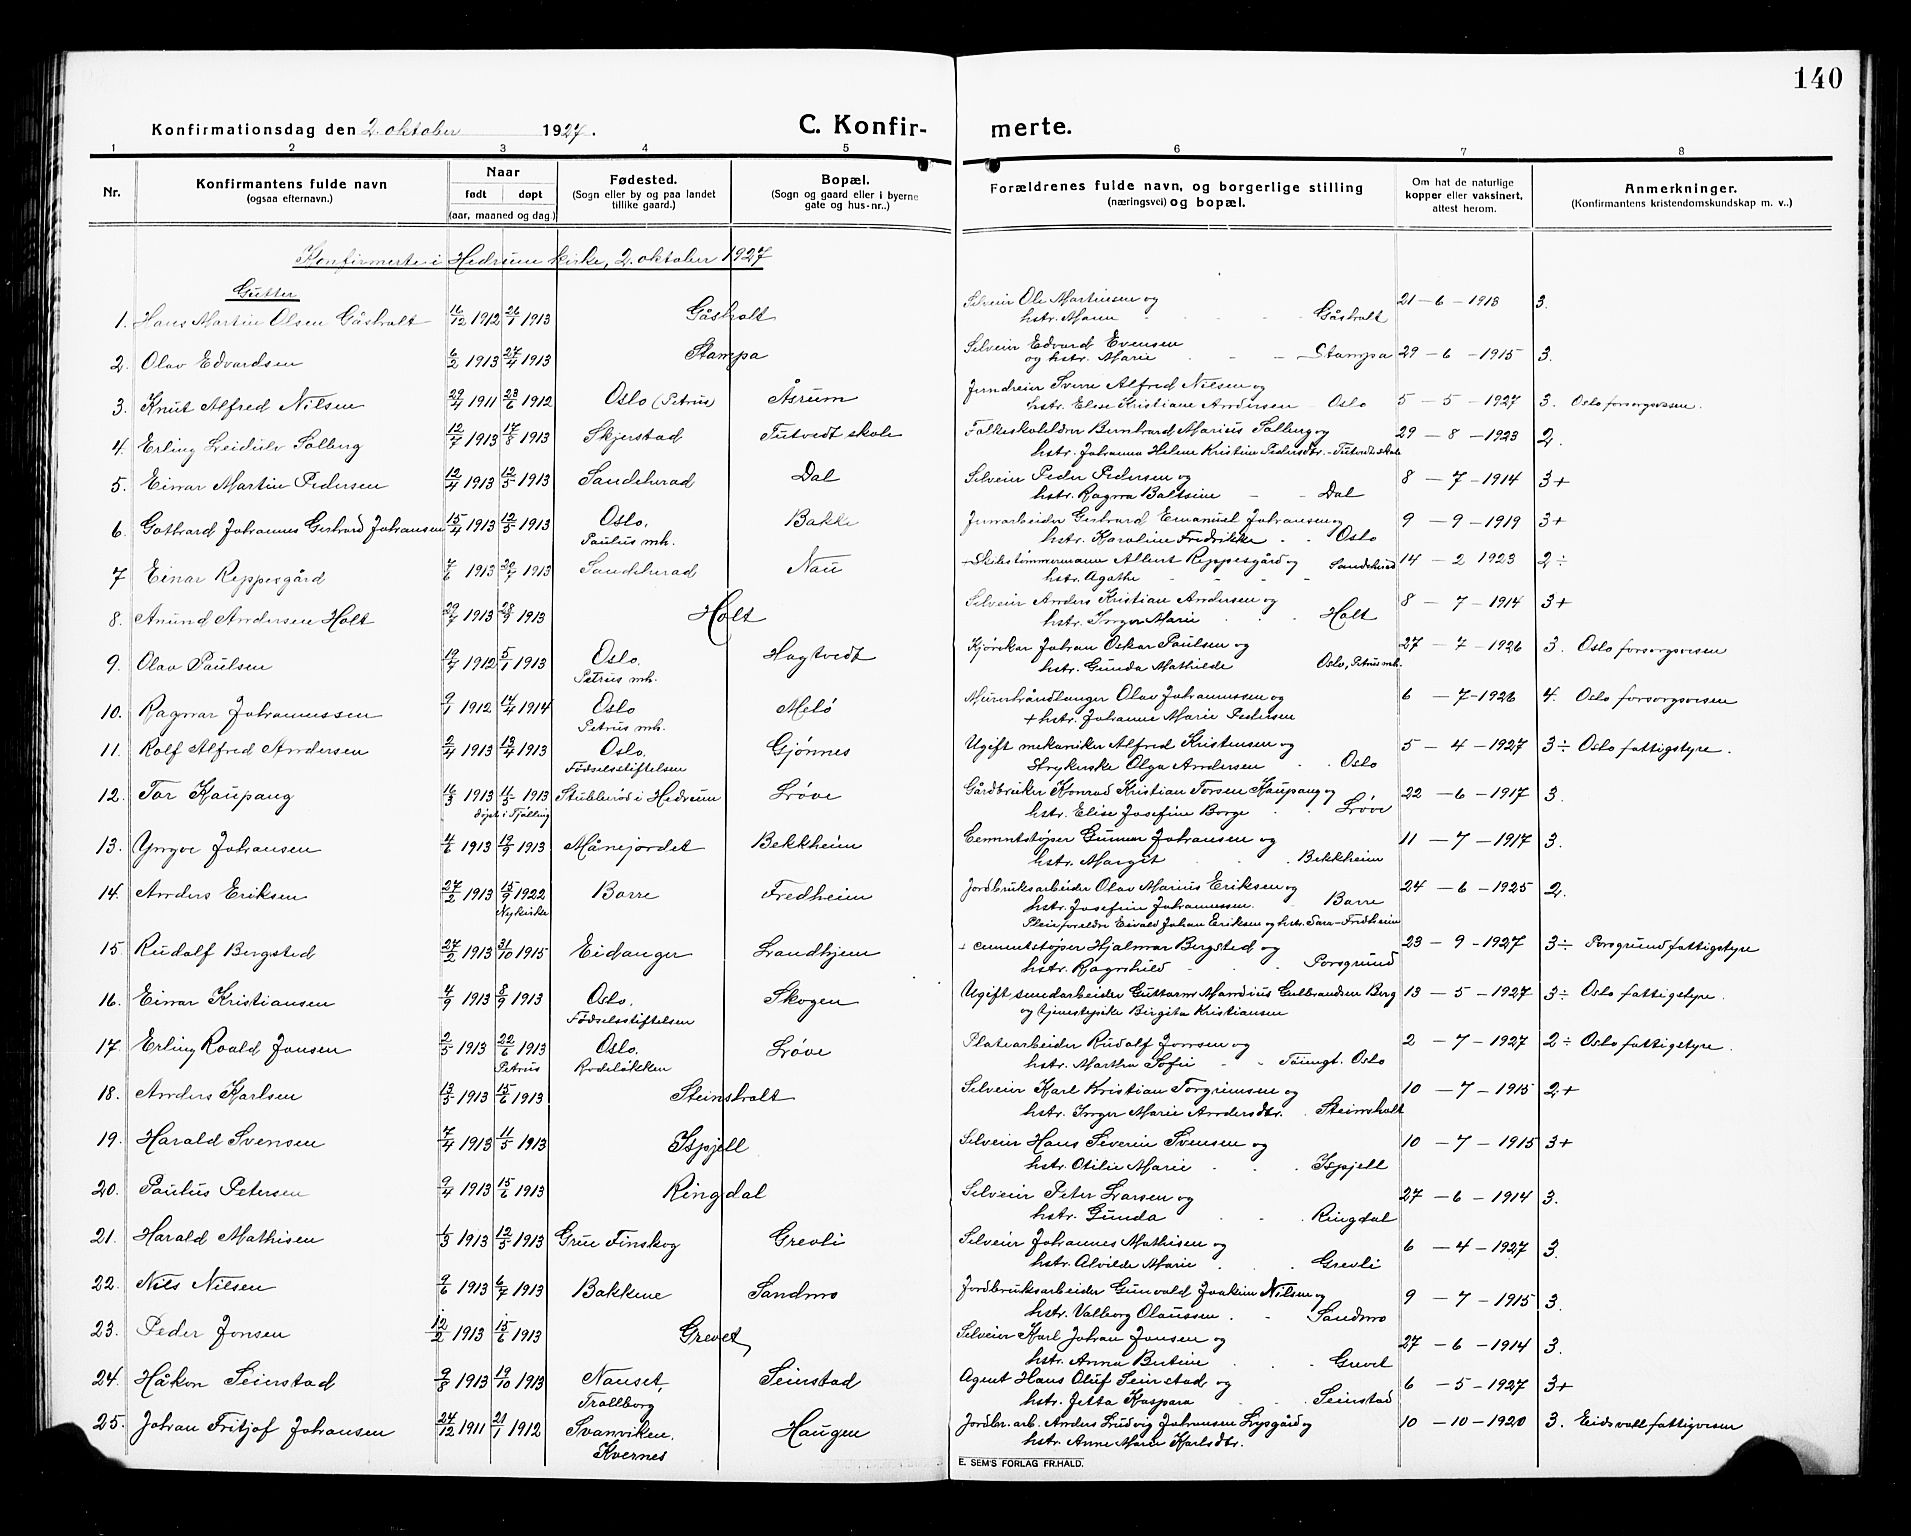 140
Konfirmationsdag den 2. oktober 1927. C. Konfir- merte.
1 2 3 4 5 6 7 8
Nr. Konfirmantens fulde navn (ogsaa efternavn.) Naar født døpt (aar, maaned og dag.) Fødested. (Sogn eller by og paa landet tillike gaard.) Bopæl. (Sogn og gaard eller i byerne gate og hus-nr..) Forældrenes fulde navn, og borgerlige stilling (næringsvei) og bopæl. Om hat de naturlige kopper eller vaksinert, attest herom. Anmerkninger. (Konfirmantens kristendomskundskap m. v..)
Konfirmerte i Hedrum kirke, 2. oktober 1927
Gutter
1. Hans Martin Olsen Gåsholt 16/12 1912 26/1 1913 Gåsholt Selveier Ole Martinsen og 21-6-1918 3.
hstr. Maren Gåsholt
2. Olav Edvardsen 6/2 1913 27/4 1913 Stampa Selveier Edvard Evensen
og hstr. Marie - - Stampa 29-6-1915 3.
3. Knut Alfred Nilsen 29/4 1911 23/6 1912 Oslo (Petrus) Åsrum Jerndreier Sverre Alfred Nilsen og
hstr. Elise Kristiane Andersen - Oslo 5-5-1927 3. Oslo forsorgsvesen.
4. Erling Leidulv Solberg 12/7 1913 17/8 1913 Skjerstad Tutvedt skole Folkeskolelærer Bernhard Marius Solberg og 29-8-1923 2.
hstr. Johanna Helene Kristine Pedersdtr. - Tutvedt skole
5. Einar Martin Pedersen 12/4 1913 12/5 1913 Sandeherad Dal Selveier Peder Pedersen og 8-7-1914 3+
hstr. Ragna Baltsine - - Dal
6. Gothard Johannes Gerhard Johansen 15/4 1913 12/5 1913 Oslo, Bakke Jernarbeider Gerhard Emanuel Johansen og 9-9-1919 3+
Paulus mh. hstr. Karoline Fredrikke . . Oslo
7 Einar Reppesgård 7/6 1913 20/7 1913 Sandeherad Nau Skibstømmermann Albert Reppesgård og Sandeherad 14-2 1923 2÷
hstr. Agathe
8. Anund Andersen Holt 29/7 1913 28/9 1913 Holt Selveier Anders Kristian Andersen og 8-7-1914 3+
hstr. Inger Marie . . Holt
9. Olav Paulsen 19/7 1912 5/1 1913 Oslo, Hagtvedt Kjørekar Johan Oskar Paulsen og 27-7-1926 3. Oslo forsorgsvesen
Petrus mh. hstr. Gunda Mathilde Oslo, Petrus mh.
10. Ragnar Johannessen 9/1 1912 14/4 1914 Oslo Melø Murerhåndlanger Olav Johannessen og 6-7-1926 4. Oslo forsorgsvesen
Petrus mh. + hstr. Johanne Marie Pedersen
11. Rolf Alfred Andersen 2/4 1913 13/4 1913 Oslo, Gjønnes Ugift mekaniker Alfred Kristensen og 5-4-1927 3÷ Oslo fattigstyre.
Fødselsstiftelsen Strykerske Olga Andersen . . Oslo
12. Tor Kaupang 16/3 1913 11/5 1913 Stubberød i Hedrum Løve Gårdbruker Konrad Kristian Torsen Kaupang og 22-6-1917 3.
døpt i Tjølling hstr. Elise Josefine Borge . . Løve
13. Yngve Johansen 4/6 1913 19/9 1913 Månejordet Bekkheim Cementstøper Gunnar Johansen og 11-7-1917 3.
hstr. Margit . . Bekkheim
14. Anders Eriksen 27/2 1913 15/9 1922 Borre Fredheim Jordbruksarbeider Olav Marius Eriksen og 24-6-1925 2.
Nykirke hstr. Josefine Johannessen. - Borre
Pleieforeldre Eivald Johan Eriksen og hstr. Sara - Fredheim
15. Rudolf Bergsted 27/2 1913 31/10 1915 Eidanger Landhjem + cementstøper Hjalmar Bergsted og 23-9-1927 3÷ Porsgrund fattigstyre
hstr. Ragnhild - . Porsgrund
16. Einar Kristiansen 4/9 1913 8/9 1913 Oslo. Skogen Ugift smedarbeider Guttorm Mandius Gulbrandsen Berg 13-5-1927 3÷ Oslo fattigstyre.
Fødselsstiftelsen og tjenestepike Birgite Kristiansen
17. Erling Roald Jonsen 2/5 1913 22/6 1913 Oslo. Løve Platearbeider Rudolf Jonsen og 2-7-1927 2÷ Oslo fattigstyre.
Petrus Rodeløkken hstr. Martha Sofie - - Tøiengt. Oslo
18. Anders Karlsen 13/3 1913 15/6 1913 Steinsholt Selveier Karl Kristian Torgrimsen og 10-7-1915 2+
hstr. Inger Marie Andersdtr. . Steinsholt
19. Harald Svensen 7/4 1913 11/5 1913 Ispjell Selveier Hans Severin Svensen og 10-7-1915 3+
hstr. Otilie Marie . . Ispjell
20. Paulus Petersen 9/4 1913 15/6 1913 Ringdal Selveier Peter Larsen og 27-6-1914 3.
hstr. Gunda . . Ringdal
21. Harald Mathisen 1/3 1913 12/5 1913 Grue Finskog Grevli Selveier Johannes Mathisen og 6-4-1927 3.
hstr. Alvilde Marie . . Grevli
22. Nils Nilsen 9/6 1913 6/7 1913 Bakkene Sandmo Jordbruksarbeider Gunvald Joakim Nilsen og 9-7-1915 3.
hstr. Valborg Olaussen . - Sandmo
23. Peder Jonsen 12/2 1913 15/6 1913 Grevet Selveier Karl Johan Jonsen og 27-6-1914 3.
hstr. Anna Bertine . . Grevet
24. Håkon Seierstad 9/8 1913 19/10 1913 Nanset, Seierstad Agent Hans Oluf Seierstad og 6-5-1927 3+
Trollborg hstr. Jetta Kaspara Seierstad
25. Johan Fritjof Johansen 24/12 1911 21/1 1912 Svanviken, Haugen Jordbr. arb. Anders Ludvig Johansen Lysgård og 10-10-1920 3. Eidsvoll fattigvesen
Kvernes hstr. Anne Marie Karlsdtr.
E. SEM'S FORLAG FR.HALD.